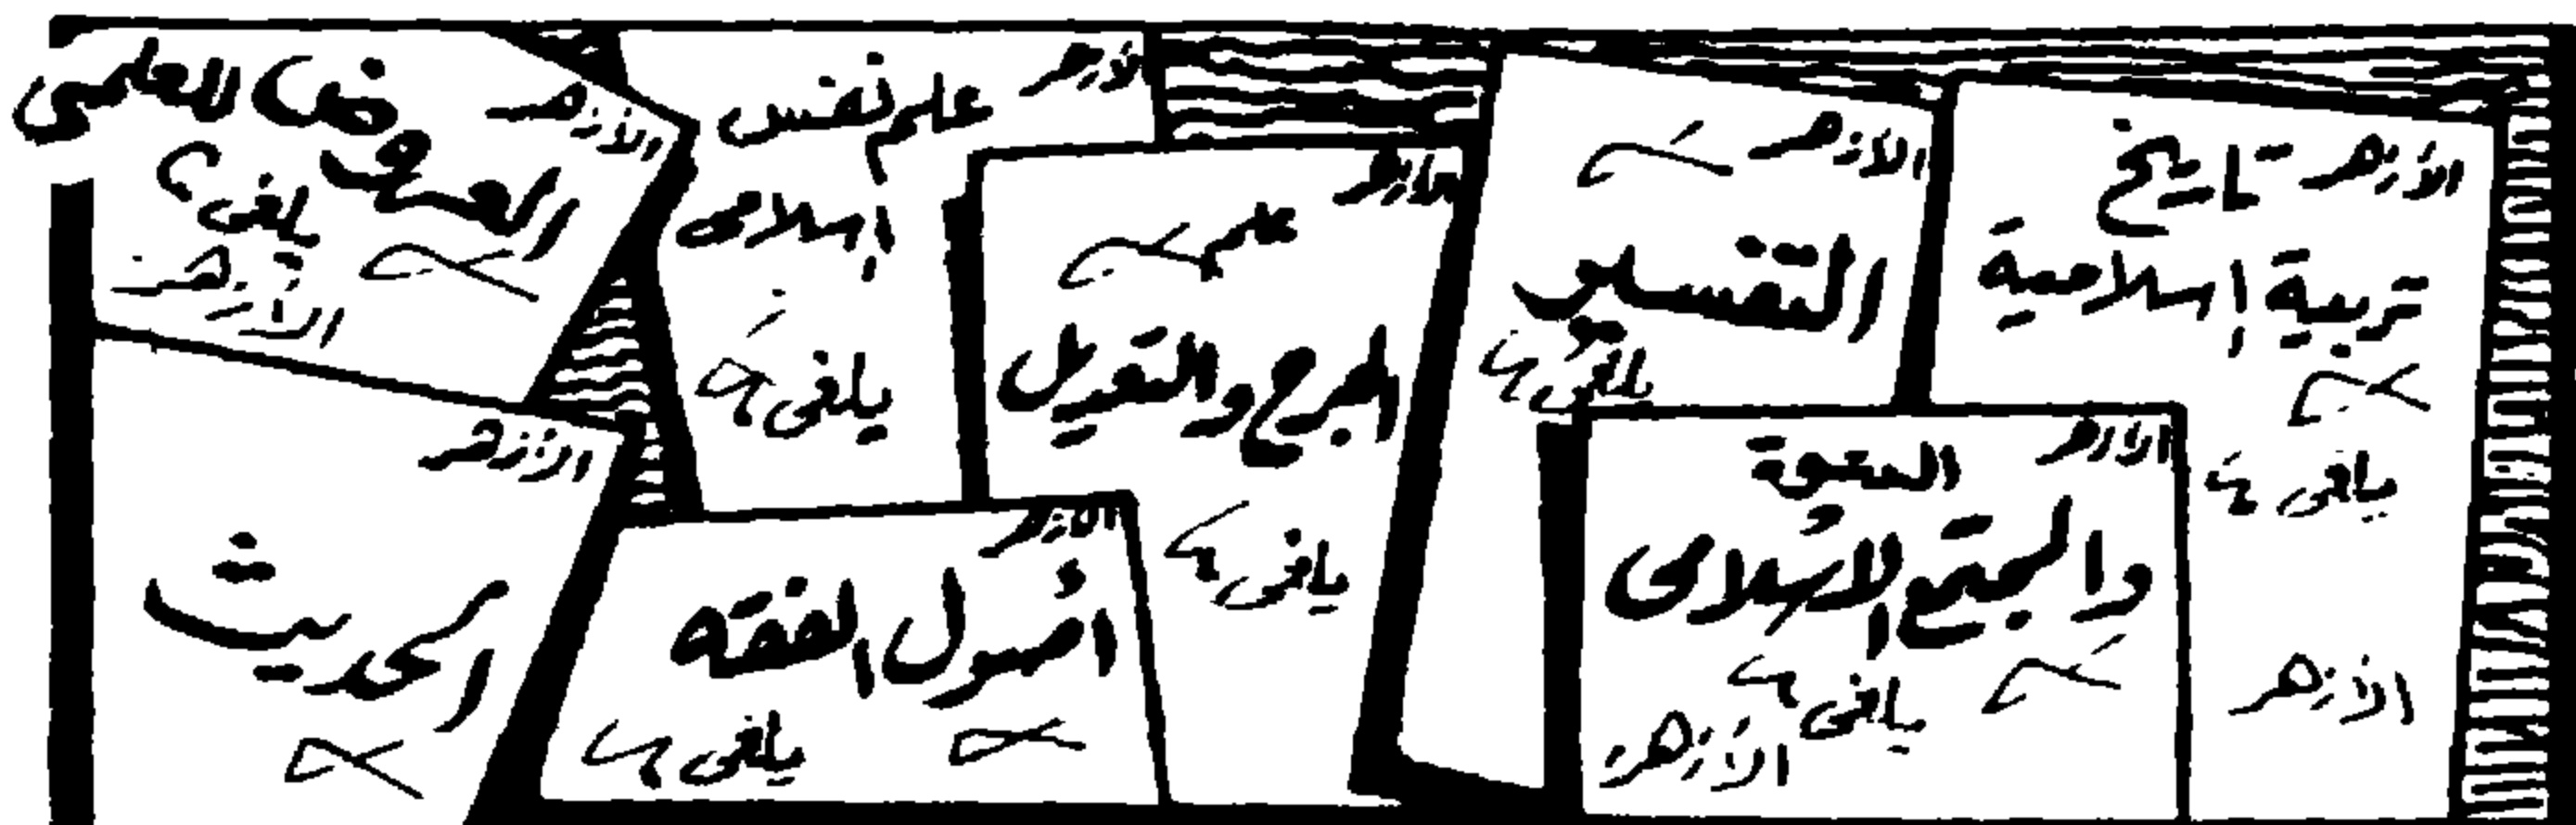 الأزهر تاريخ
تربية إسلامية
يلغى
الأزهر
الأزهر
التفسير
يلغى
الأزهر
الدعوة
والمجتمع الإسلامى
يلغى
الأزهر
الأزهر
علم
الجرح والتعديل
يلغى
الأزهر
علم نفس
إسلامى
يلغى
الأزهر
أصول الفقه
يلغى
الأزهر
يلغى
الأزهر
الأزهر
الحديث